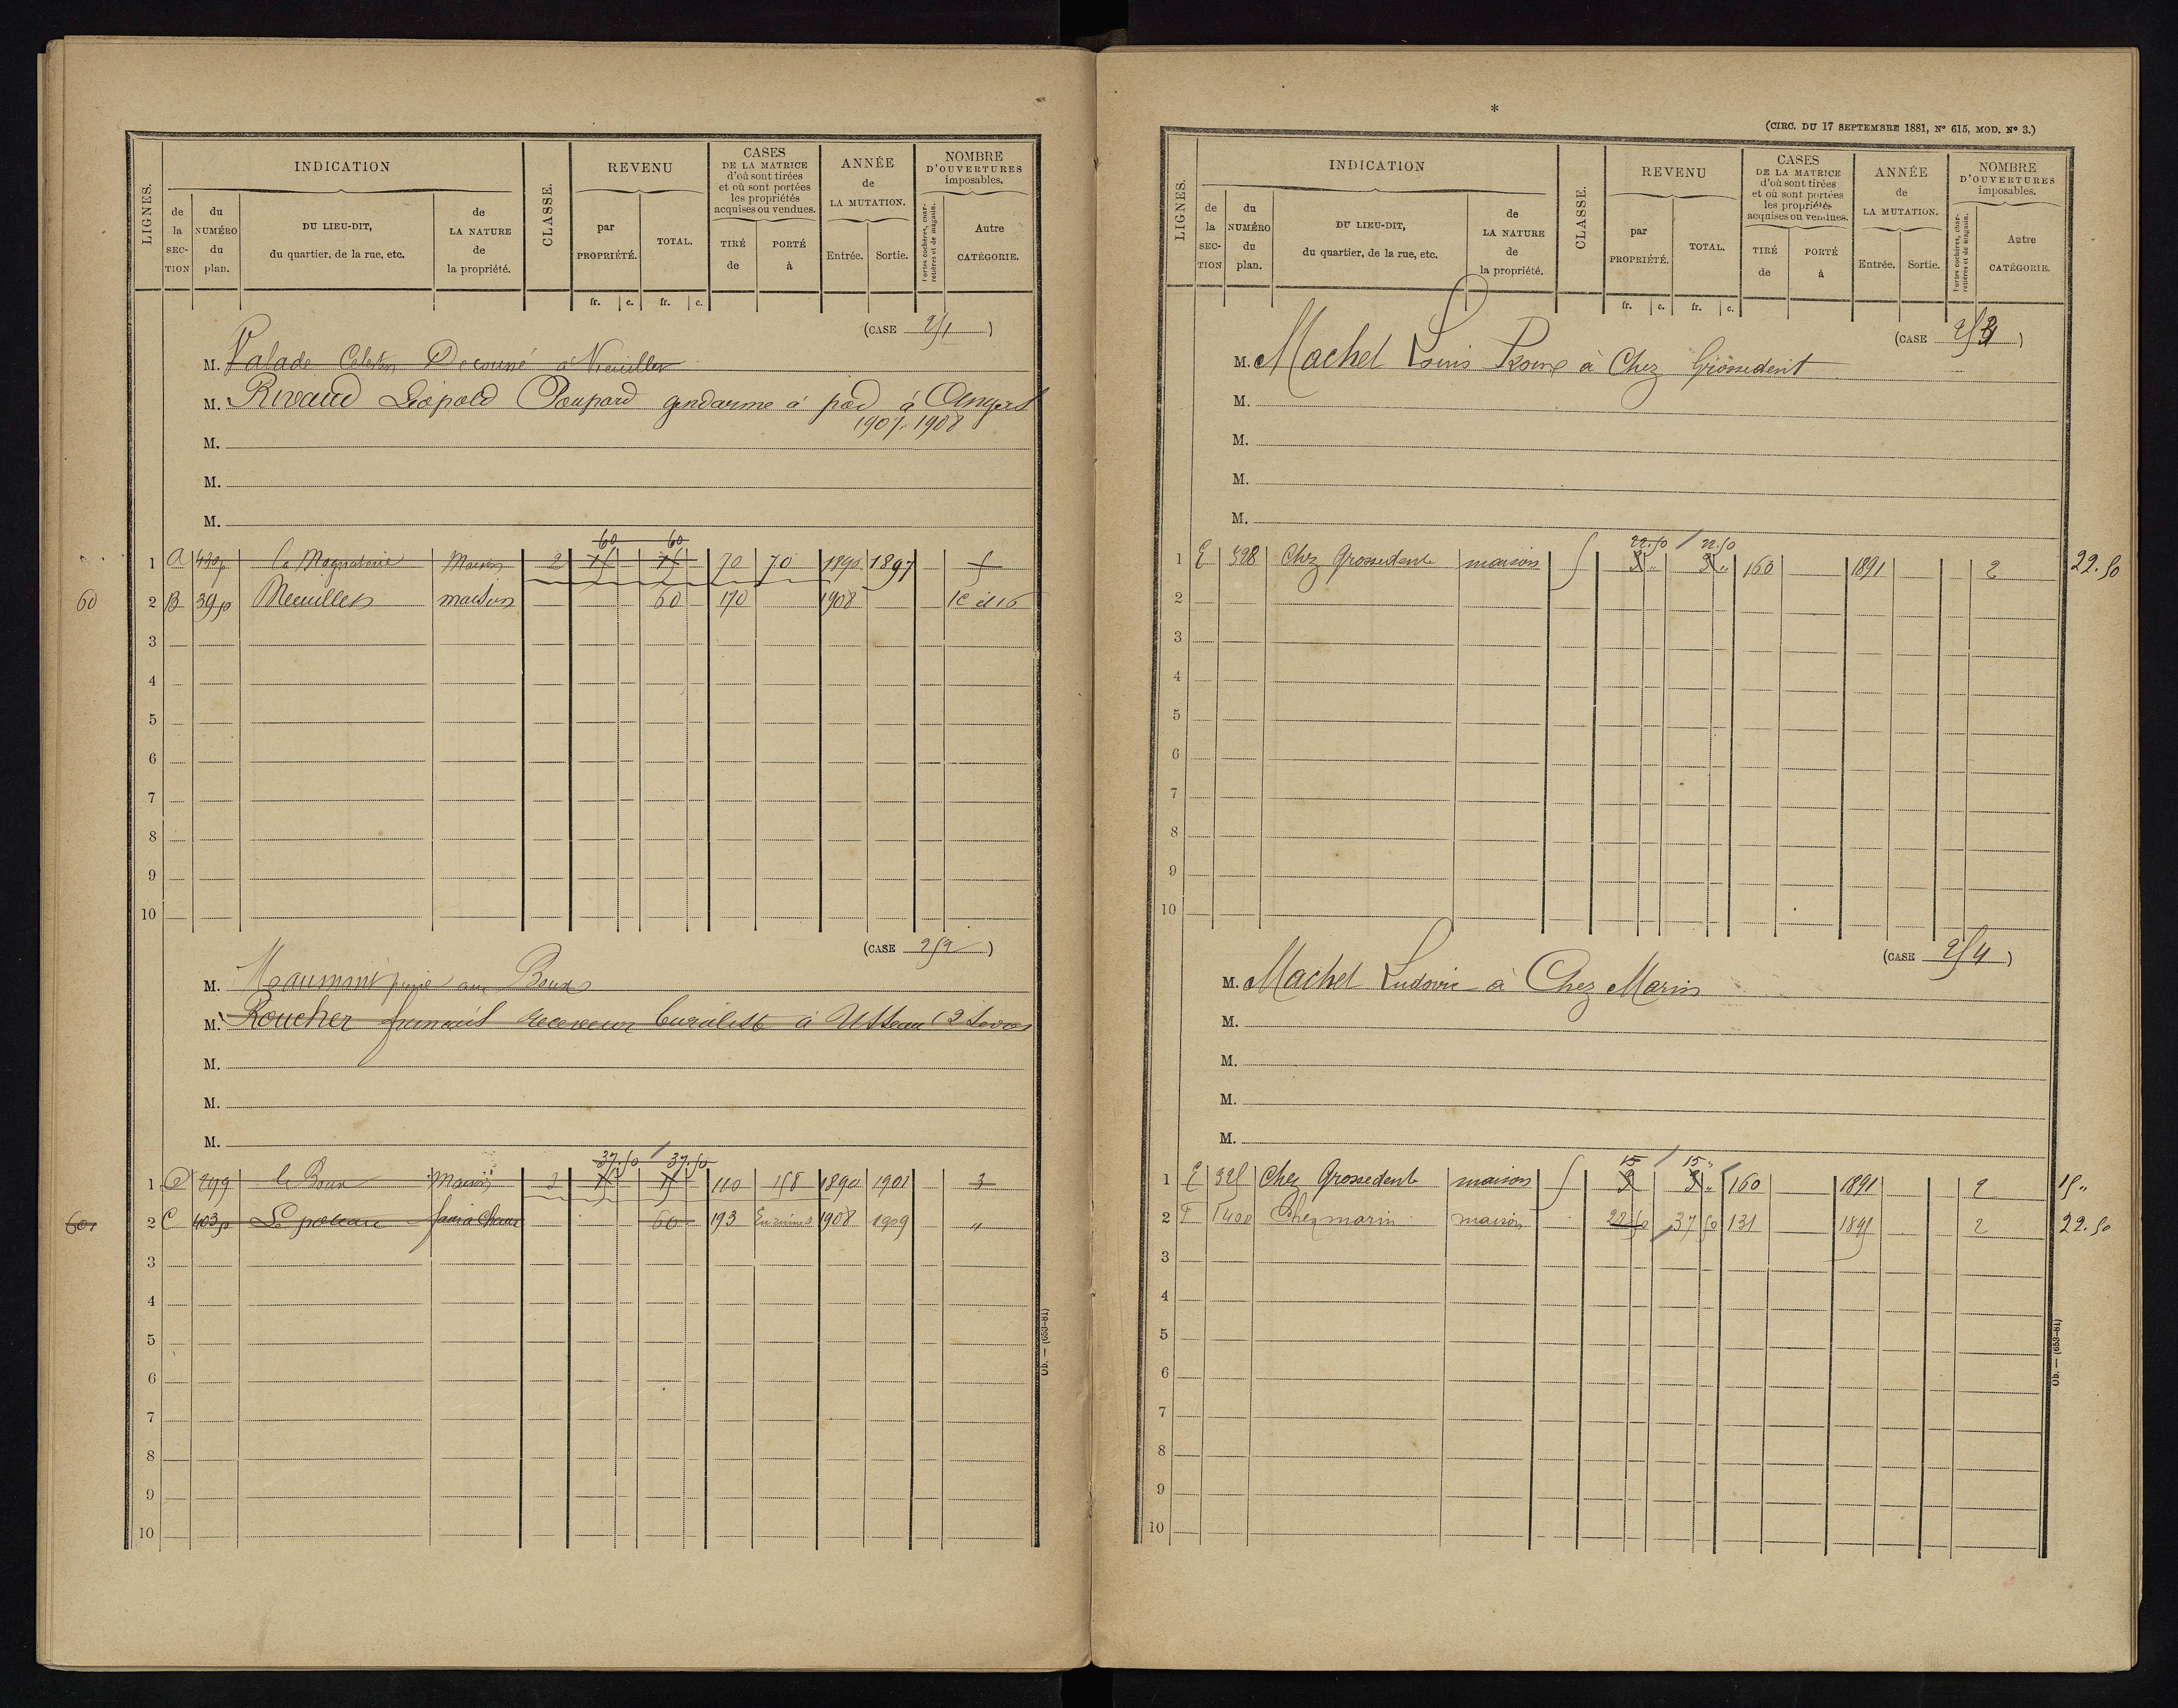 INDICATION
REVENU
CASES DE LA MATRICE d'où sont tirées et où sont portées les propriétés acquises ou vendues.
ANNÉE de LA MUTATION.
NOMBRE D'OUVERTURES imposables.
LIGNES.
de la SECTION
du NUMÉRO du plan.
DU LIEU-DIT, du quartier, de la rue, etc.
de LA NATURE de la propriété.
CLASSE.
par PROPRIÉTÉ.
TOTAL.
TIRÉ de
PORTÉ à
Entrée.
Sortie.
Portes cochères, charretières et de magasin.
Autre CATÉGORIE.
fr. c. fr. c.
(CASE 251)
M. Valade Célestin à
M. Rivaud Léopold Poupard gendarme à pied à Angers
1907. 1908
M.
M.
M.
60 60
1 A 430p Maison 2 75 75 70 70 1890 1897 5
60 2 B 39p maison 60 170 1908
3
4
5
6
7
8
9
10
(CASE 252)
M. Maumont aux Boux
M. Roucher receveur buraliste à Usseau (2 Sèvres
M.
M.
M.
37.50 37.50
1 849 le Boux Maison 3 110 158 1890 1901 3
60 2 C 403p Le poteau four à Chaux 60 193 En ruines 1908 1909 "
3
4
5
6
7
8
9
10
Ob. — (653-81)
*
(CIRC. DU 17 SEPTEMBRE 1881, N° 615, MOD. N° 3.)
INDICATION
REVENU
CASES DE LA MATRICE d'où sont tirées et où sont portées les propriétés acquises ou vendues.
ANNÉE de LA MUTATION.
NOMBRE D'OUVERTURES imposables.
LIGNES.
de la SECTION
du NUMÉRO du plan.
DU LIEU-DIT, du quartier, de la rue, etc.
de LA NATURE de la propriété.
CLASSE.
par PROPRIÉTÉ.
TOTAL.
TIRÉ de
PORTÉ à
Entrée.
Sortie.
Portes cochères, charretières et de magasin.
Autre CATÉGORIE.
fr. c. fr. c.
(CASE 253)
M. Machet Louis à Chez Grossedent
M.
M.
M.
M.
22.50 / 22.50
1 E 328 Chez Grossedent maison 5 3 " 3 " 160 1891 2 22.50
2
3
4
5
6
7
8
9
10
(CASE 254)
M. Machet Ludovic à Chez Marin
M.
M.
M.
M.
15 / 15 "
1 E 325 Chez Grossedent maison 5 3 3 " 160 1891 2 15 "
2 1400 Chez marin maison 22 50 37 50 131 1895 2 22.50
3
4
5
6
7
8
9
10
Ob. — (653-81)